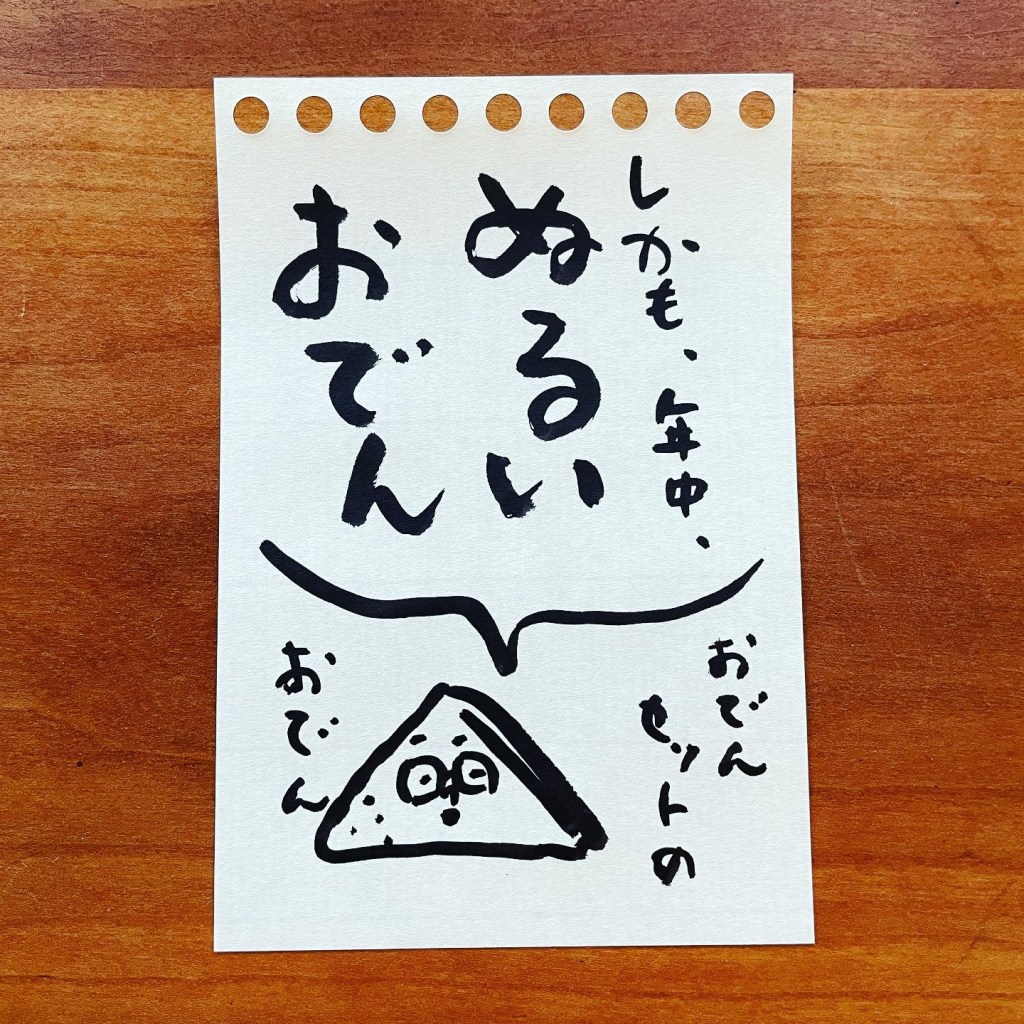 しかも、年中、
ぬるい
おでん
おでん
セットの
おでん